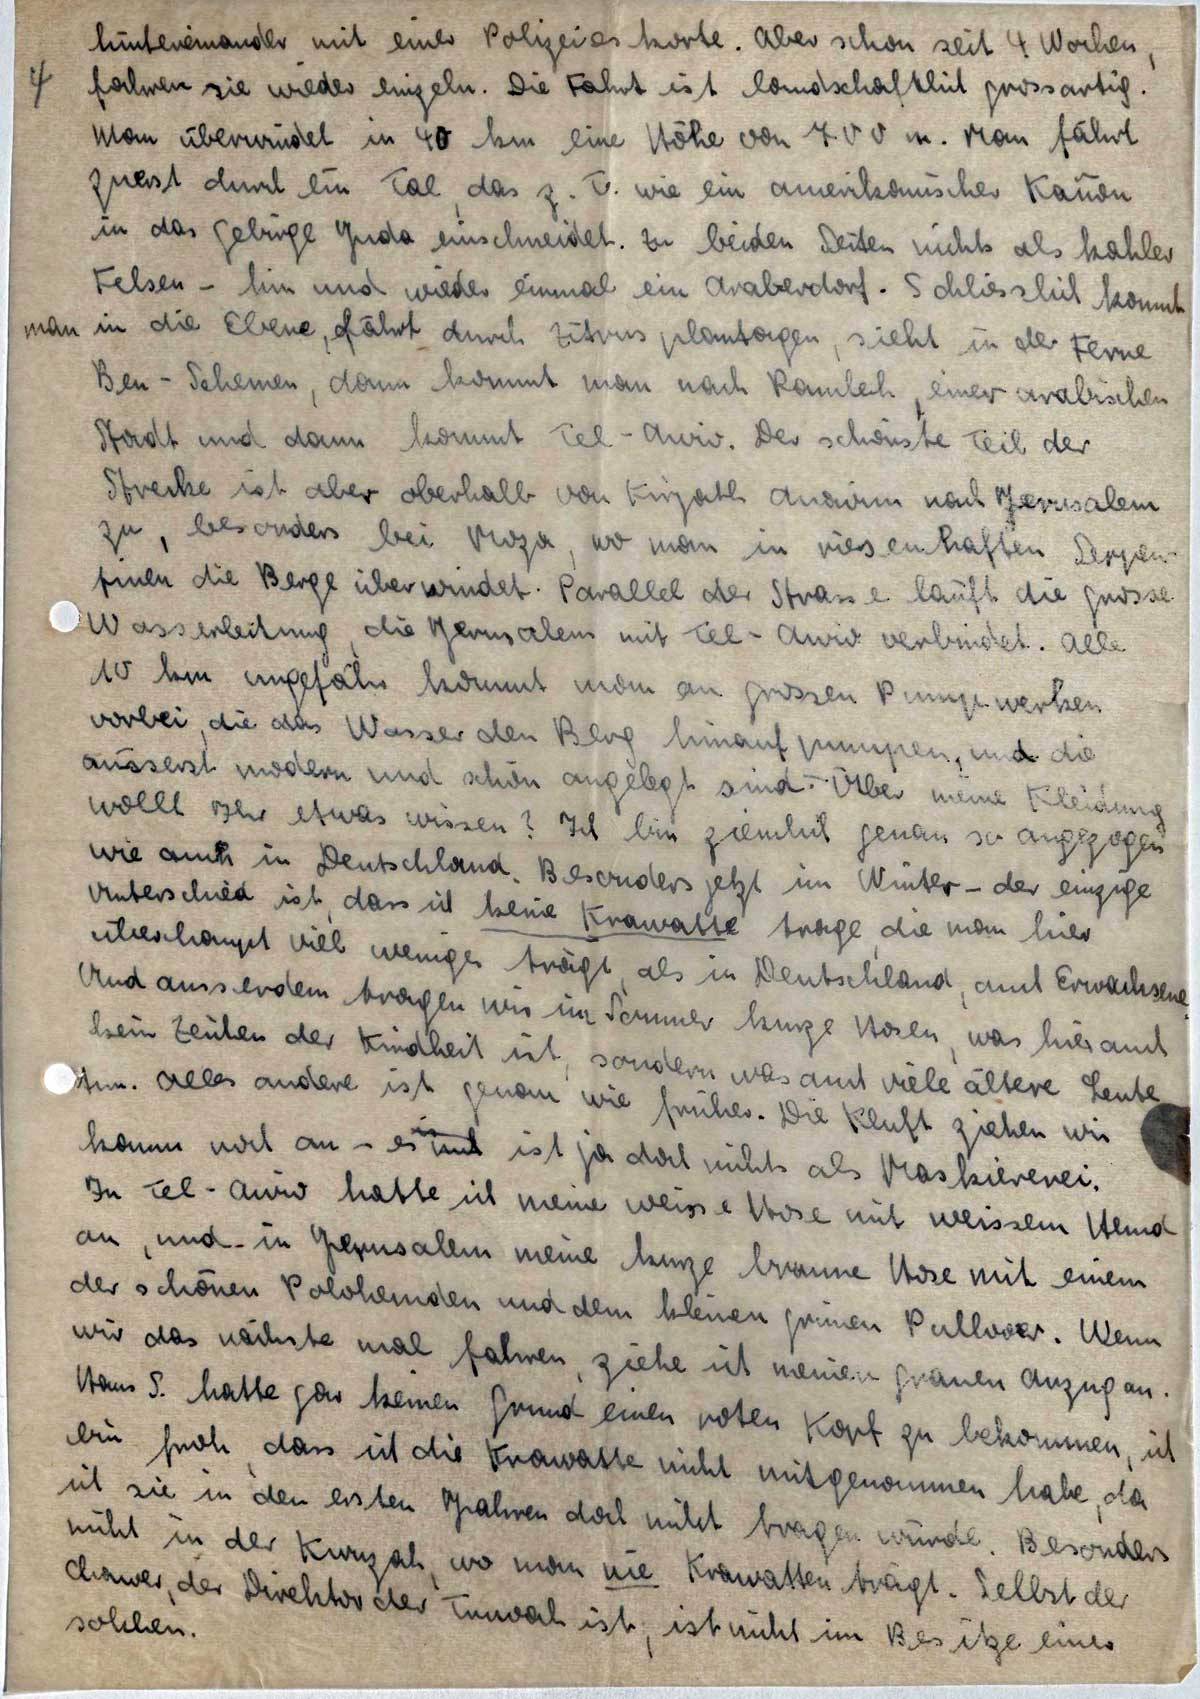 4
hintereinander mit einer Polizeieskorte. Aber schon seit 4 Wochen,
fahren sie wieder einzeln. Die Fahrt ist landschaftlich grossartig.
Man überwindet in 40 km eine Höhe von 700 m. Man fährt
zuerst durch ein Tal, das z. T. wie ein amerikanischer Kañon
in das Gebirge Juda einschneidet. Zu beiden Seiten nichts als kahler
Felsen – hin und wieder einmal ein Araberdorf. Schliesslich kommt
man in die Ebene, fährt durch Zitrusplantagen, sieht in der Ferne
Ben-Schemen, dann kommt man nach Ramleh, einer arabischen
Stadt und dann kommt Tel-Awiw. Der schönste Teil der
Strecke ist aber oberhalb von Kirjath Anawim nach Jerusalem
zu, besonders bei Moza, wo man in riesenhaften Serpen-
tinen die Berge überwindet. Parallel der Strasse läuft die grosse
Wasserleitung, die Jerusalem mit Tel-Awiw verbindet. Alle
10 km ungefähr kommt man an grossen Pumpwerken
vorbei, die das Wasser den Berg hinauf pumpen, und die
äusserst modern und schön angelegt sind. – Über meine Kleidung
wollt Ihr etwas wissen? Ich bin ziemlich genau so angezogen
wie auch in Deutschland. Besonders jetzt im Winter – der einzige
Unterschied ist, dass ich keine Krawatte trage, die man hier
überhaupt viel weniger trägt, als in Deutschland, auch Erwachsene.
Und ausserdem tragen wir im Sommer kurze Hosen, was hier auch
kein Zeichen der Kindheit ist, sondern was auch viele ältere Leute
tun. Alles andere ist genau wie früher. Die Kluft ziehen wir
kaum noch an – es ist ja doch nichts als Maskiererei.
In Tel-Awiw hatte ich meine weisse Hose mit weissem Hemd
an, und in Jerusalem meine kurze braune Hose mit einem
der schönen Polohemden und dem kleinen grünen Pullover. Wenn
wir das nächste mal fahren, ziehe ich meinen grauen Anzug an.
Hans S. hatte gar keinen Grund einen roten Kopf zu bekommen, ich
bin froh, dass ich die Krawatte nicht mitgenommen habe, da
ich sie in den ersten Jahren doch nicht tragen würde. Besonders
nicht in der Kwuzah, wo man nie Krawatten trägt. Selbst der
Chawer, der Direktor der Tnuvah ist, ist nicht im Besitze eines
solchen.